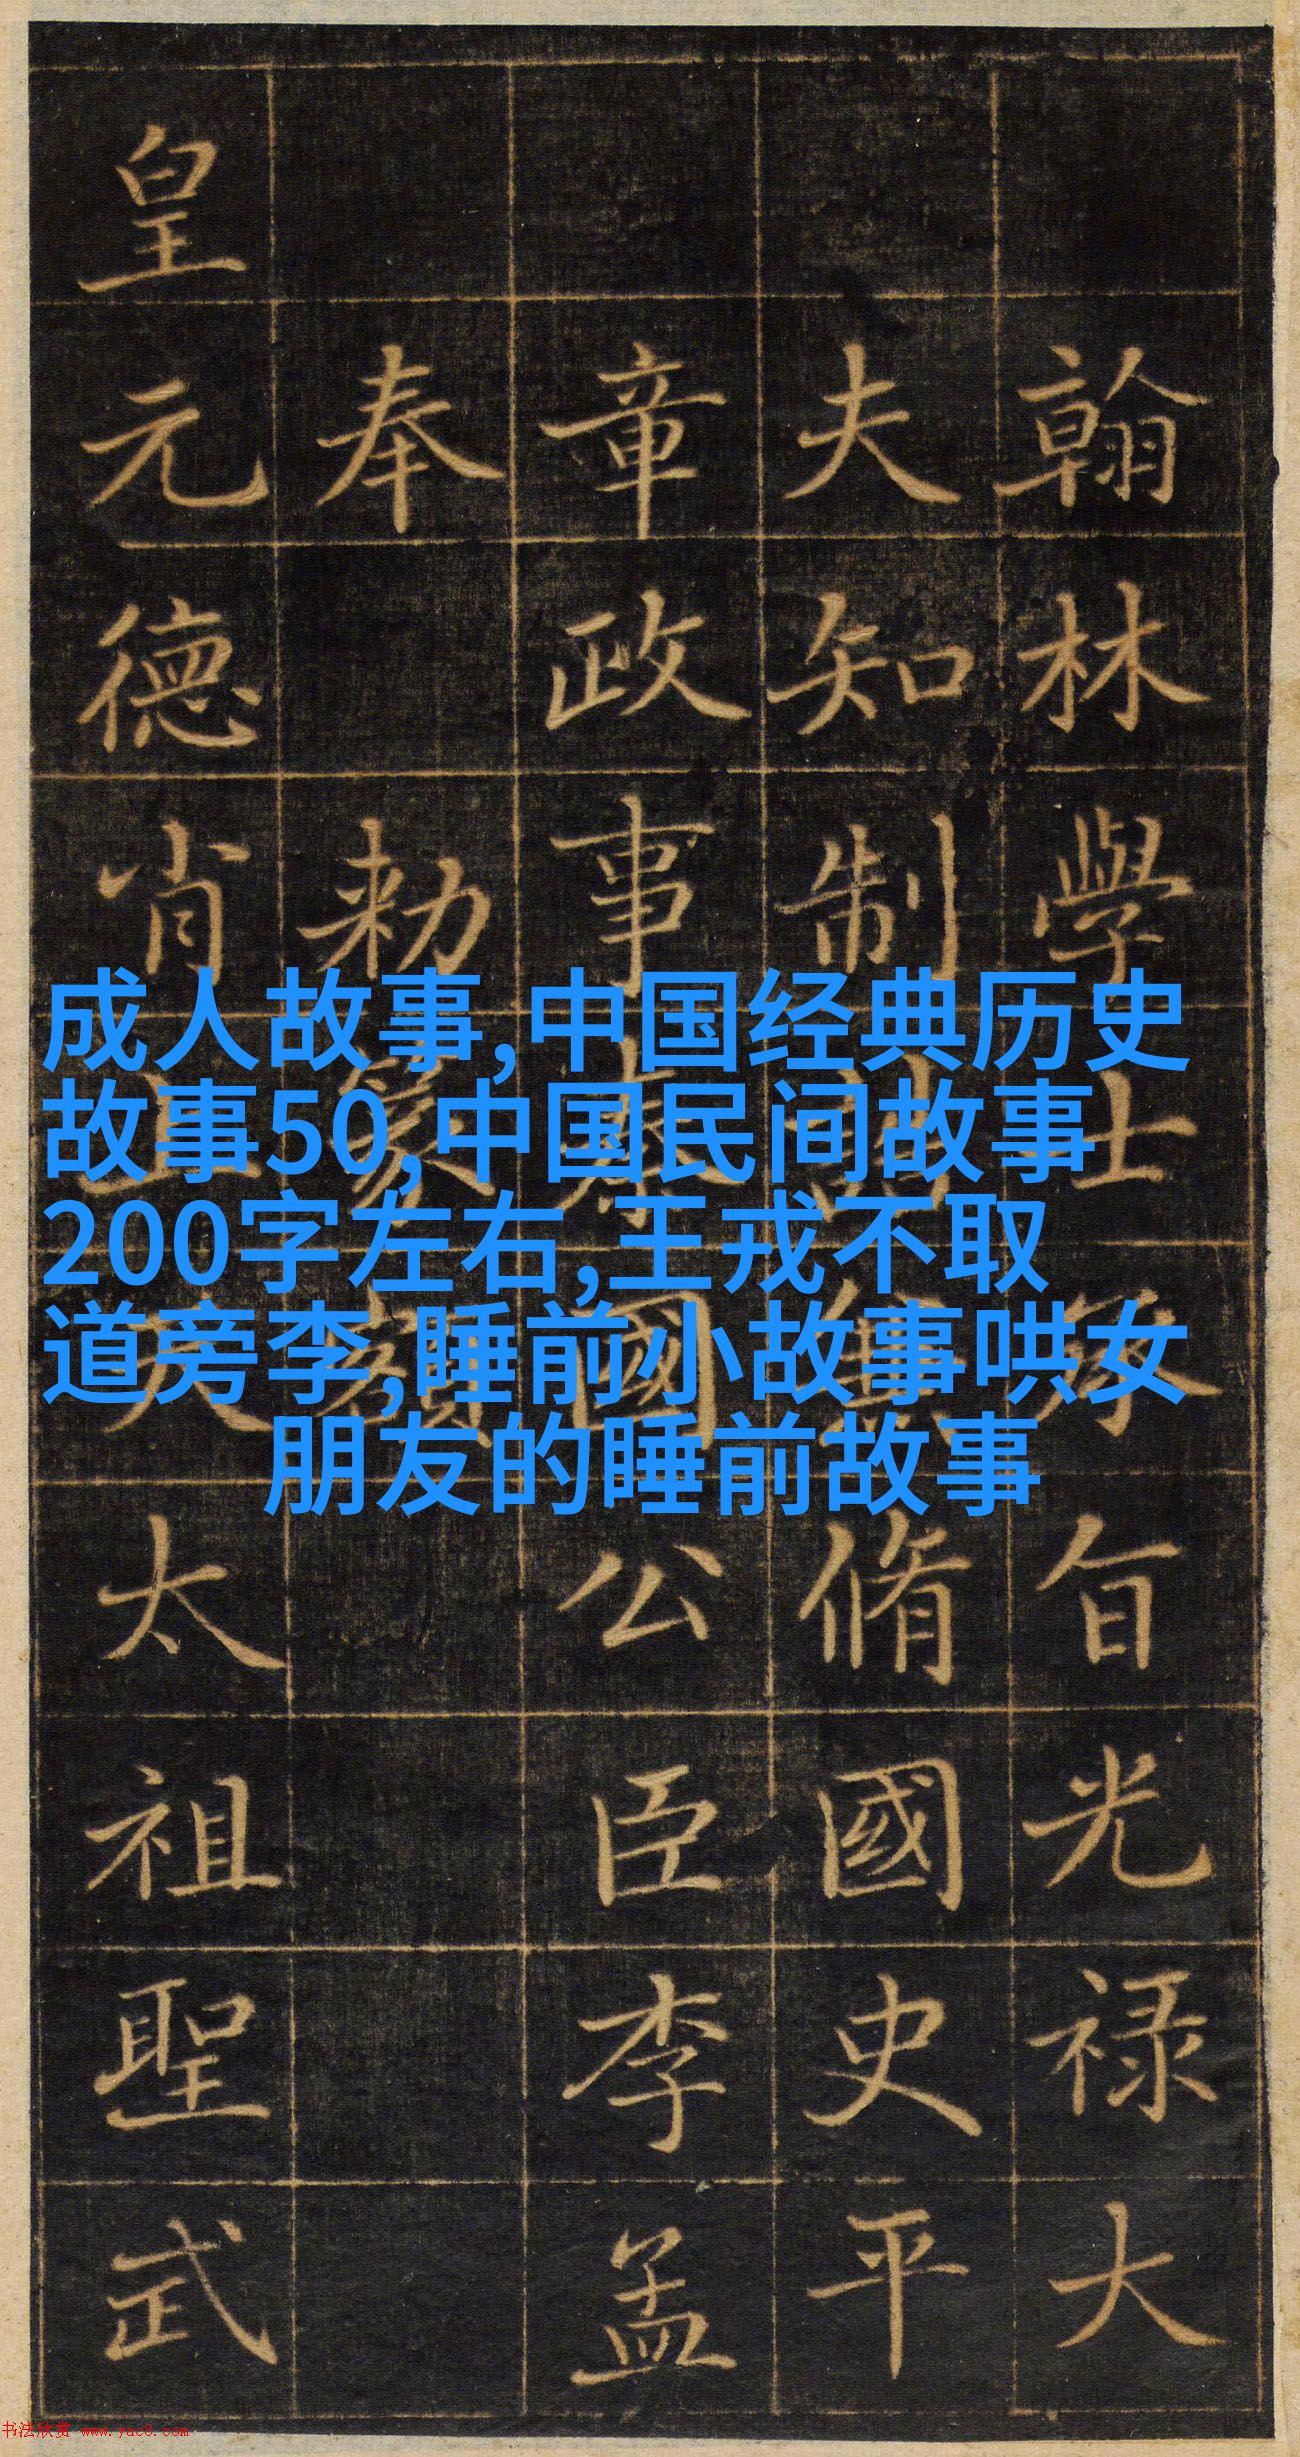 翰林學士承旨光祿大
夫知制誥兼脩國史平
章政事秦國公臣李孟
奉勑篆額
皇元德肖上天太祖聖武
成人故事,中国经典历史
故事50,中国民间故事
200字左右,王戎不取
道旁李,睡前小故事哄女
朋友的睡前故事
书法欣赏 www.yac8.com